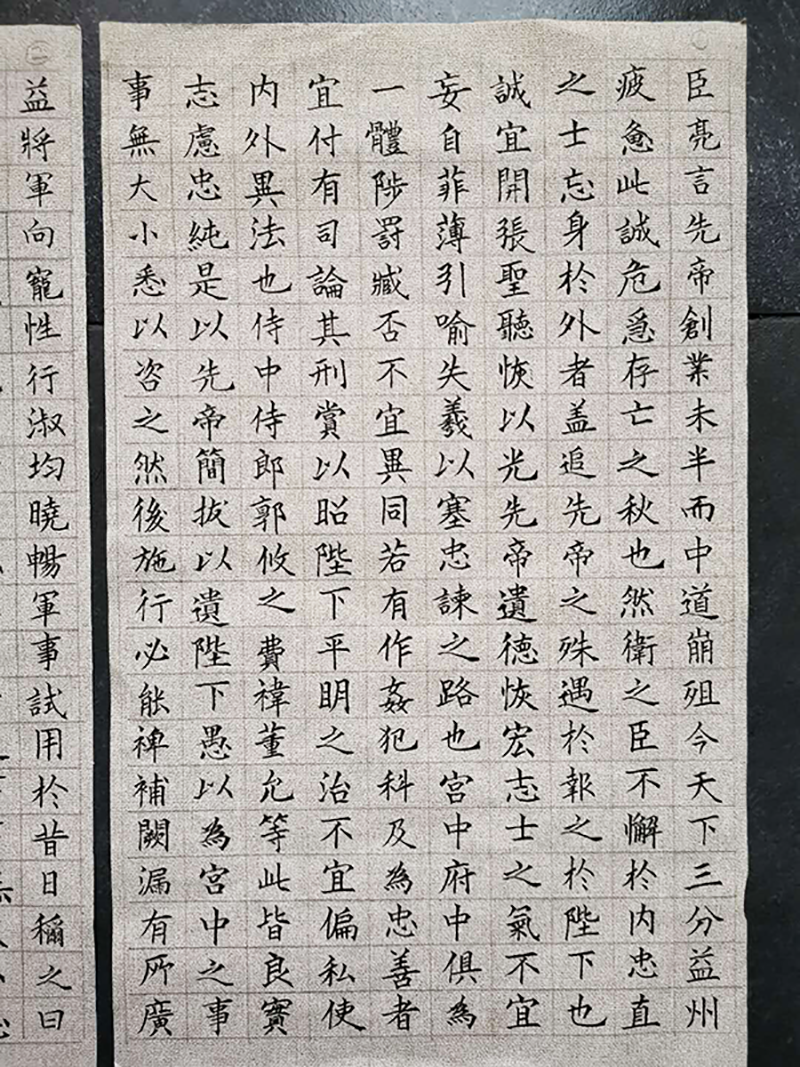 臣亮言先帝創業未半而中道崩殂今天下三分益州
疲惫此誠危急存亡之秋也然衛之臣不懈於內忠直
之士忘身於外者盖追先帝之殊遇於報之於陛下也
誠宜開張聖聽恢以光先帝遺德恢宏志士之氣不宜
妄自菲薄引喻失義以塞忠諫之路也宮中府中俱為
一體陟罰臧否不宜異同若有作姦犯科及為忠善者
宜付有司論其刑賞以昭陛下平明之治不宜偏私使
內外異法也侍中侍郎郭攸之費禕董允等此皆良實
志慮忠純是以先帝簡拔以遺陛下愚以為宮中之事
事無大小悉以咨之然後施行必能裨補闕漏有所廣
二
益將軍向寵性行淑均曉暢軍事試用於昔日稱之曰